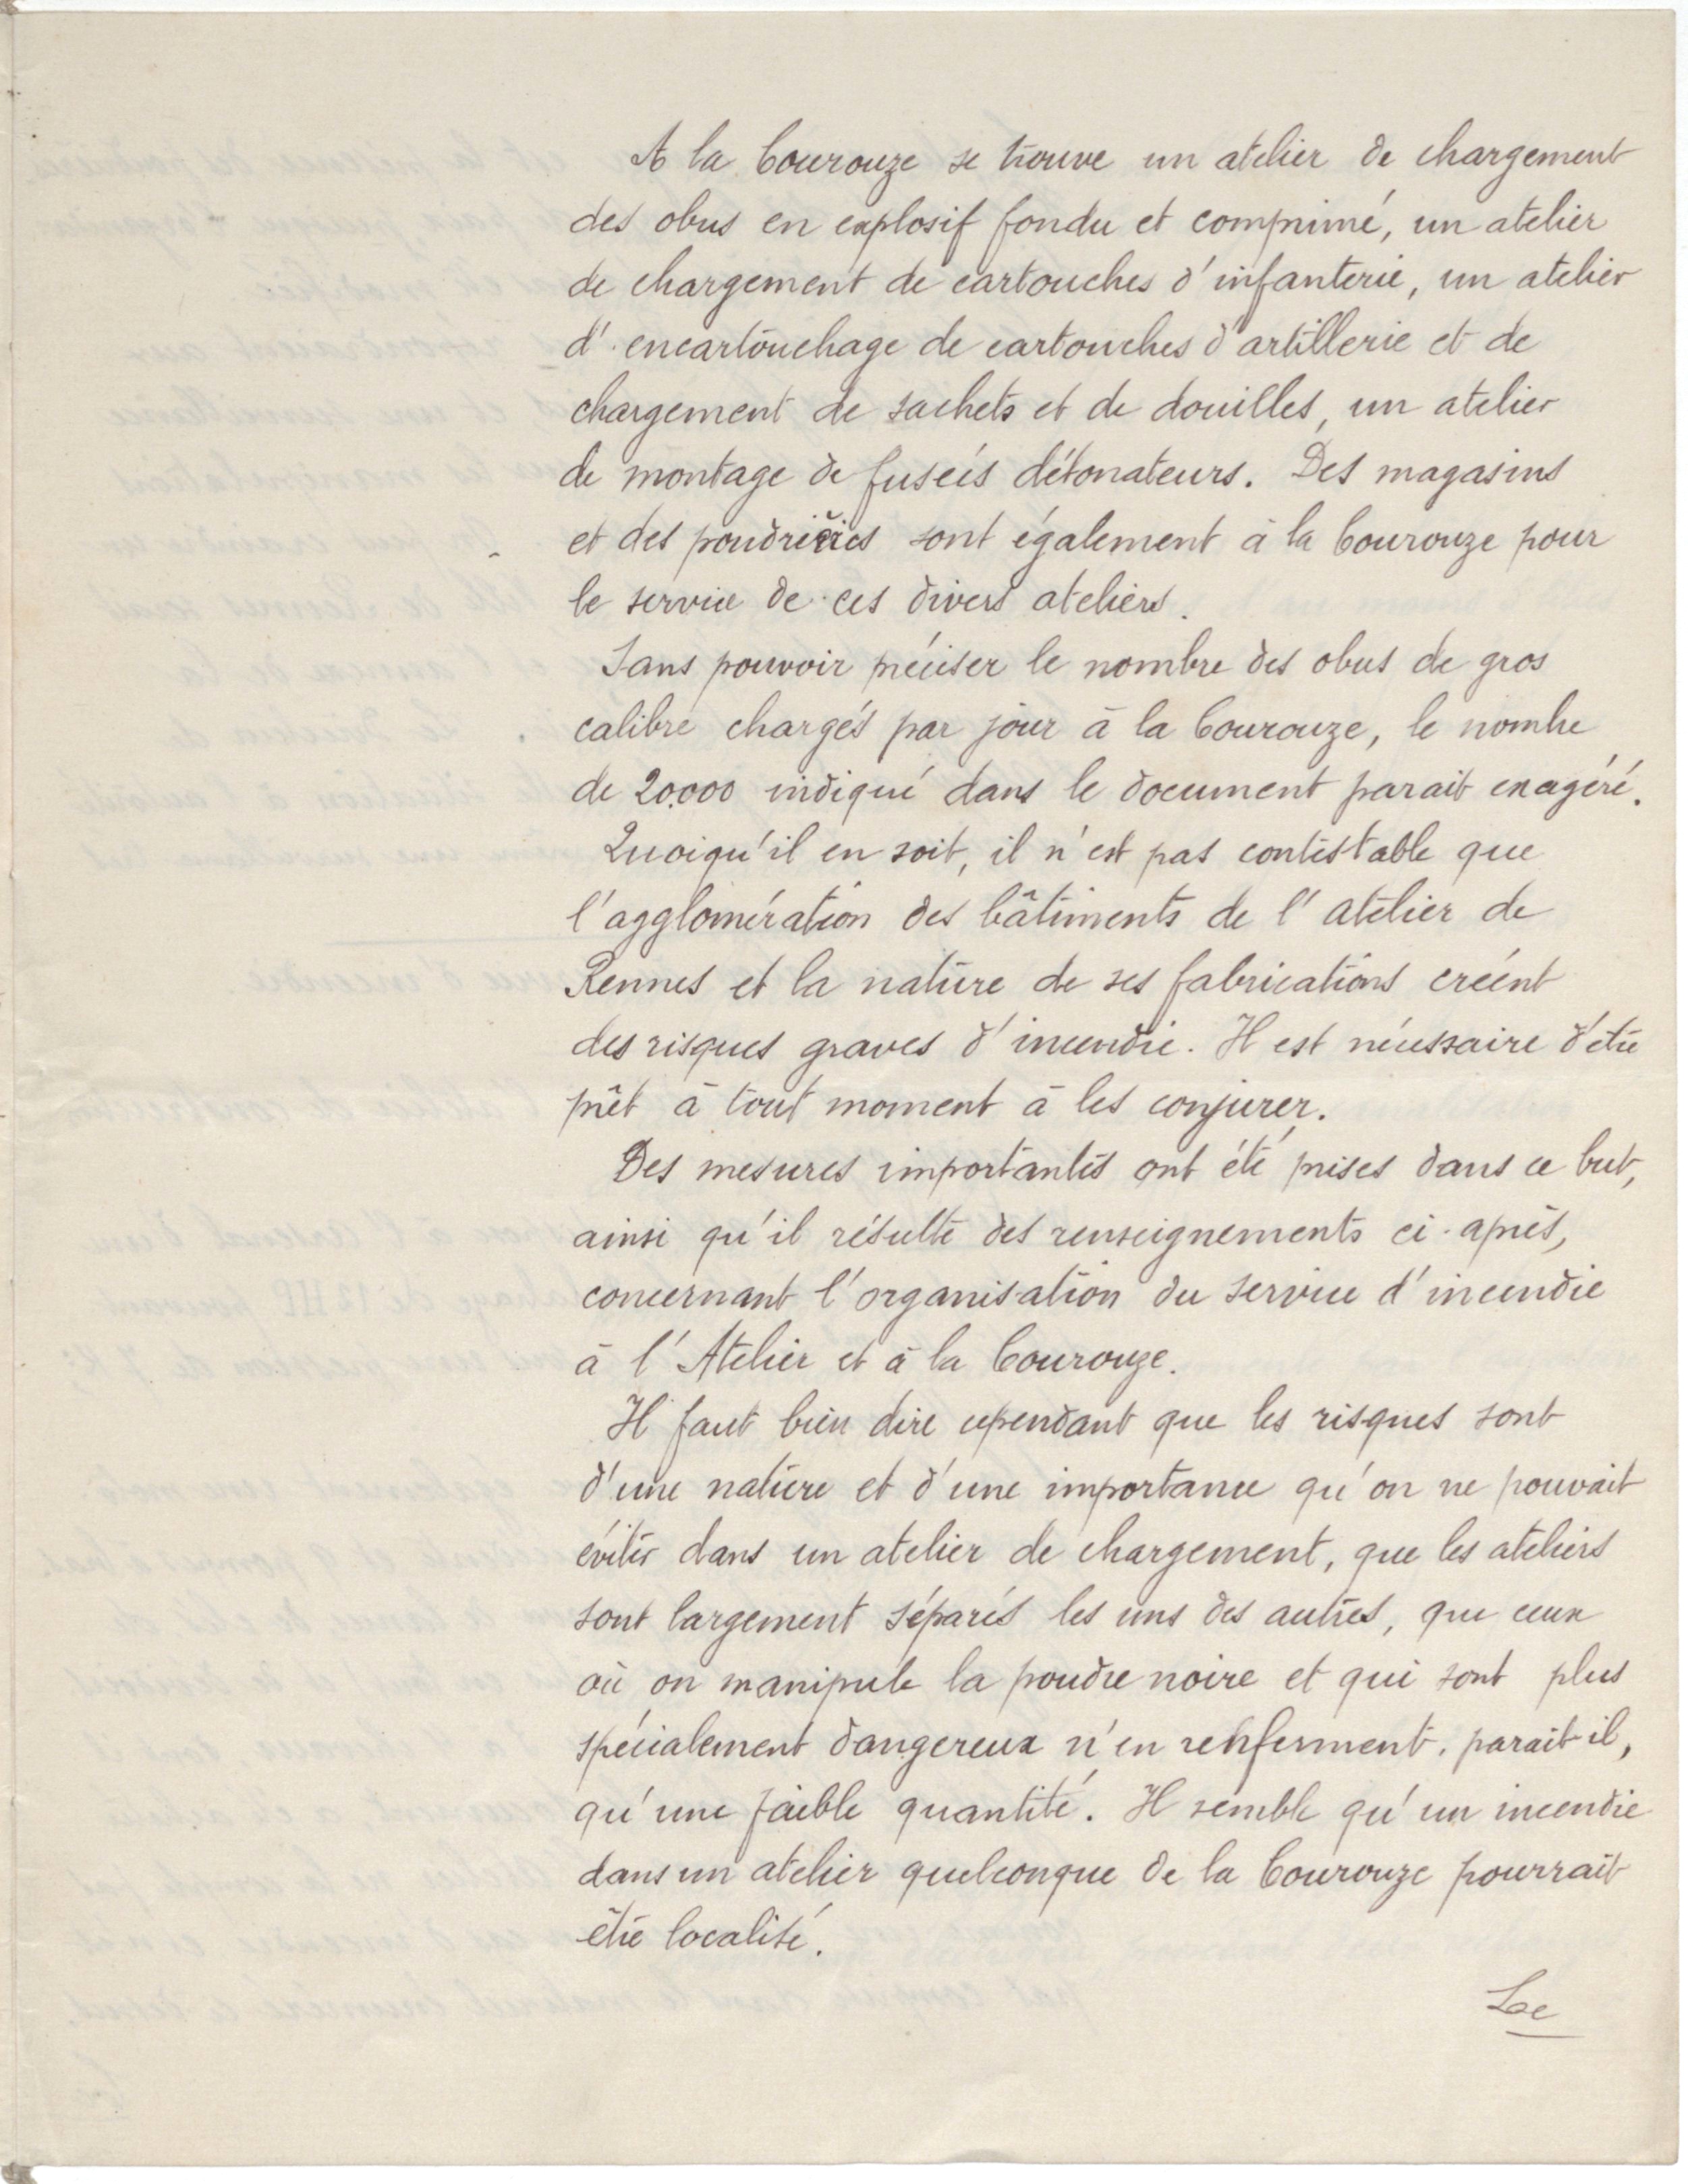 A la Courouze se trouve un atelier de chargement
des obus en explosif fondu et comprimé, un atelier
de chargement de cartouches d'infanterie, un atelier
d'encartouchage de cartouches d'artillerie et de
chargement de sachets et de douilles, un atelier
de montage de fusées détonateurs. Des magasins
et des poudrières sont également à la Courouze pour
le service de ces divers ateliers.
Sans pouvoir préciser le nombre des obus de gros
calibre chargés par jour à la Courouze, le nombre
de 20.000 indiqué dans le document parait exagéré.
Quoiqu'il en soit, il n'est pas contestable que
l'agglomération des bâtiments de l'atelier de
Rennes et la nature de ses fabrications créent
des risques graves d'incendie. Il est nécessaire d'être
prêt à tout moment à les conjurer.
Des mesures importantes ont été prises dans ce but,
ainsi qu'il résulte des renseignements ci-après,
concernant l'organisation du service d'incendie
à l'Atelier et à la Courouze.
Il faut bien dire cependant que les risques sont
d'une nature et d'une importance qu'on ne pouvait
éviter dans un atelier de chargement, que les ateliers
sont largement séparés les uns des autres, que ceux
où on manipule la poudre noire et qui sont plus
spécialement dangereux n'en renferment, parait-il,
qu'une faible quantité. Il semble qu'un incendie
dans un atelier quelconque de la Courouze pourrait
être localisé.
Le